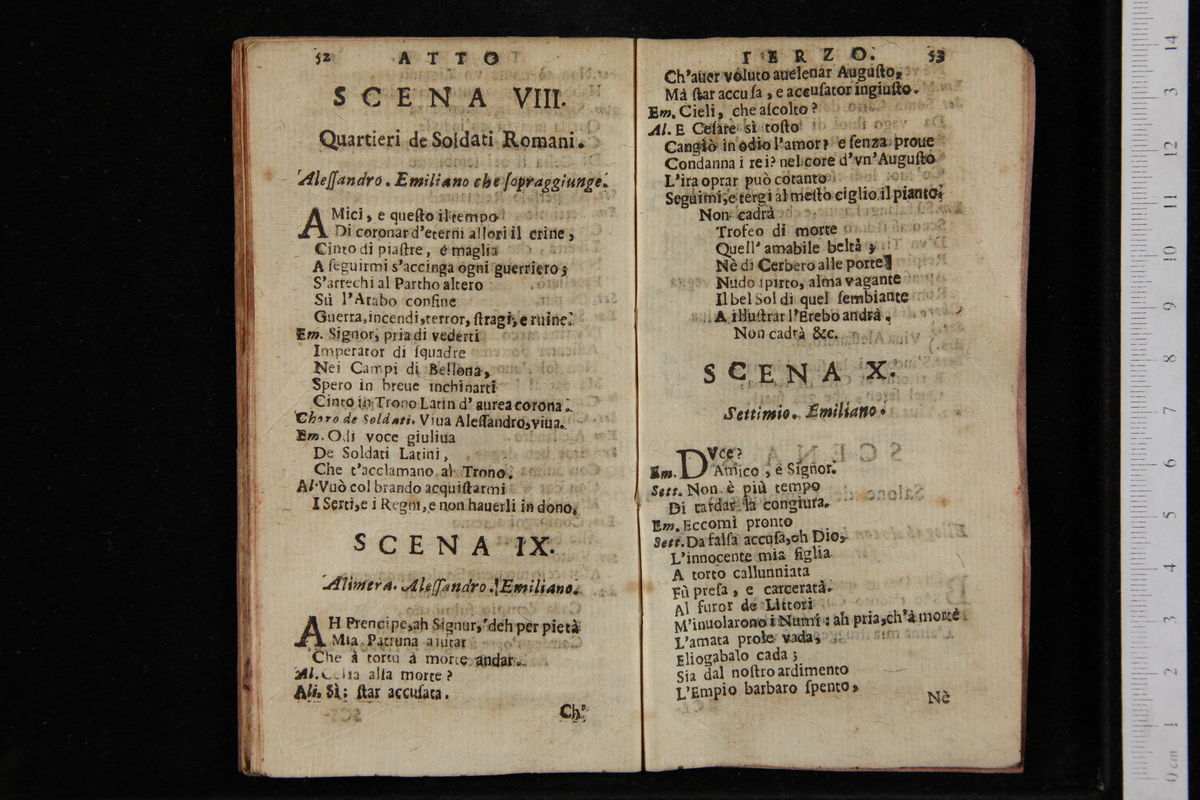 52 ATTO
SCENA VIII.
Quartieri de Soldati Romani.
Aleſſandro. Emiliano che ſopraggiunge.
AMici, e queſto il tempo
Di coronar d'eterni allori il crine,
Cinto di piaſtre, é maglia
A ſeguirmi s'accinga ogni guerriero;
S'arrechi al Partho altero
Sù l'Arabo confine
Guerra, incendi, terror, ſtragi, e ruine.
Em. Signor, pria di vederti
Imperator di ſquadre
Nei Campi di Bellona,
Spero in breue inchinarti
Cinto in Trono Latin d'aurea corona.
Choro de Soldati. Viua Aleſſandro, viua.
Em. Odi voce giuliua
De Soldati Latini,
Che t'acclamano al Trono.
Al. Vuò col brando acquiſtarmi
I Serti, e i Regni, e non hauerli in dono.
SCENA IX.
Alimera. Aleſſandro. Emiliano.
AH Prencipe, ah Signur, deh per pietà
Mia Patruna aiutar
Che à tortu à morte andar.
Al. Celia alla morte?
Ali. Sì: ſtar accuſata.
Ch'
TERZO. 53
Ch'auer voluto auelenar Auguſto,
Mà ſtar accuſa, e accuſator ingiuſto.
Em. Cieli, che aſcolto?
Al. E Ceſare sì toſto
Cangiò in odio l'amor? e ſenza proue
Condanna i rei? nel core d'vn'Auguſto
L'ira oprar può cotanto
Seguimi, e tergi al meſto ciglio il pianto.
Non cadrà
Trofeo di morte
Quell'amabile beltà;
Nè di Cerbero alle porte
Nudo ſpirto, alma vagante
Il bel Sol di quel ſembiante
A illuſtrar l'Erebo andrà.
Non cadrà &c.
SCENA X.
Settimio. Emiliano.
DVce?
Em. Amico, è Signor.
Sett. Non è più tempo
Di tardar la congiura.
Em. Eccomi pronto
Sett. Da falſa accuſa, oh Dio,
L'innocente mia figlia
A torto callunniata
Fù preſa, e carcerata.
Al furor de Littori
M'inuolarono i Numi: ah pria, ch'à morte
L'amata prole vada,
Eliogabalo cada;
Sia dal noſtro ardimento
L'Empio barbaro ſpento,
Nè